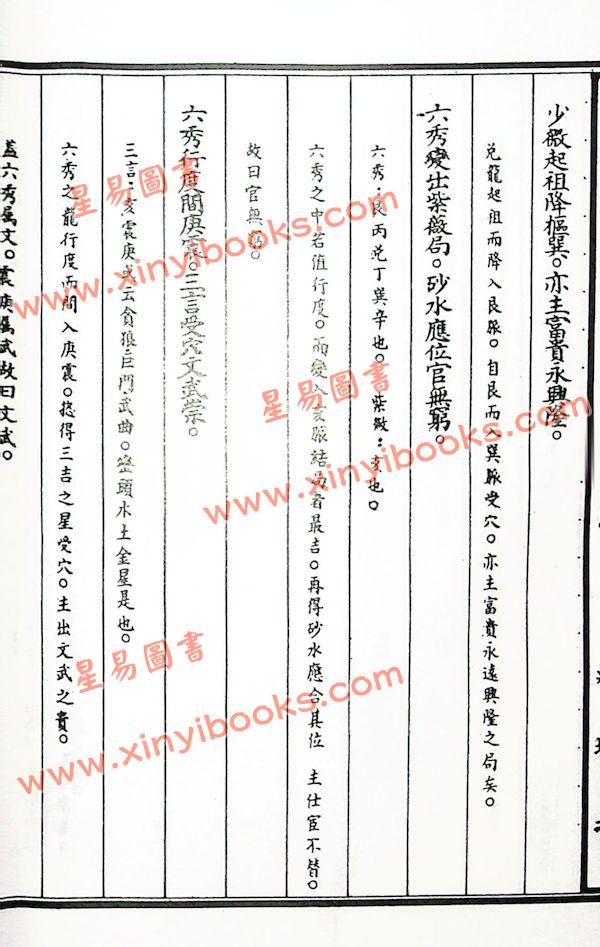 少微起祖降樞巽。亦主富貴永興隆。
兌龍起祖而降入艮脈。自艮而入巽脈受穴。亦主富貴永遠興隆之局矣。
六秀變出紫薇局。砂水應位官無窮。
六秀：艮丙兌丁巽辛也。紫微：亥也。
六秀之中若值行度。而變入亥脈結局者最吉。再得砂水應合其位 主仕宦不替。
故曰官無窮。
六秀行度間庚震。三吉受穴文武崇。
三言：亥震庚或云貪狼巨門武曲。巒頭水土金星是也。
六秀之龍行度而間入庚震。捻得三吉之星受穴。主出文武之貴。
蓋六秀屬文。震庚屬武故曰文武。
星易圖書
www.xinyibooks.com
星易圖書
www.xinyibooks.com
星易圖書
www.xinyibooks.com